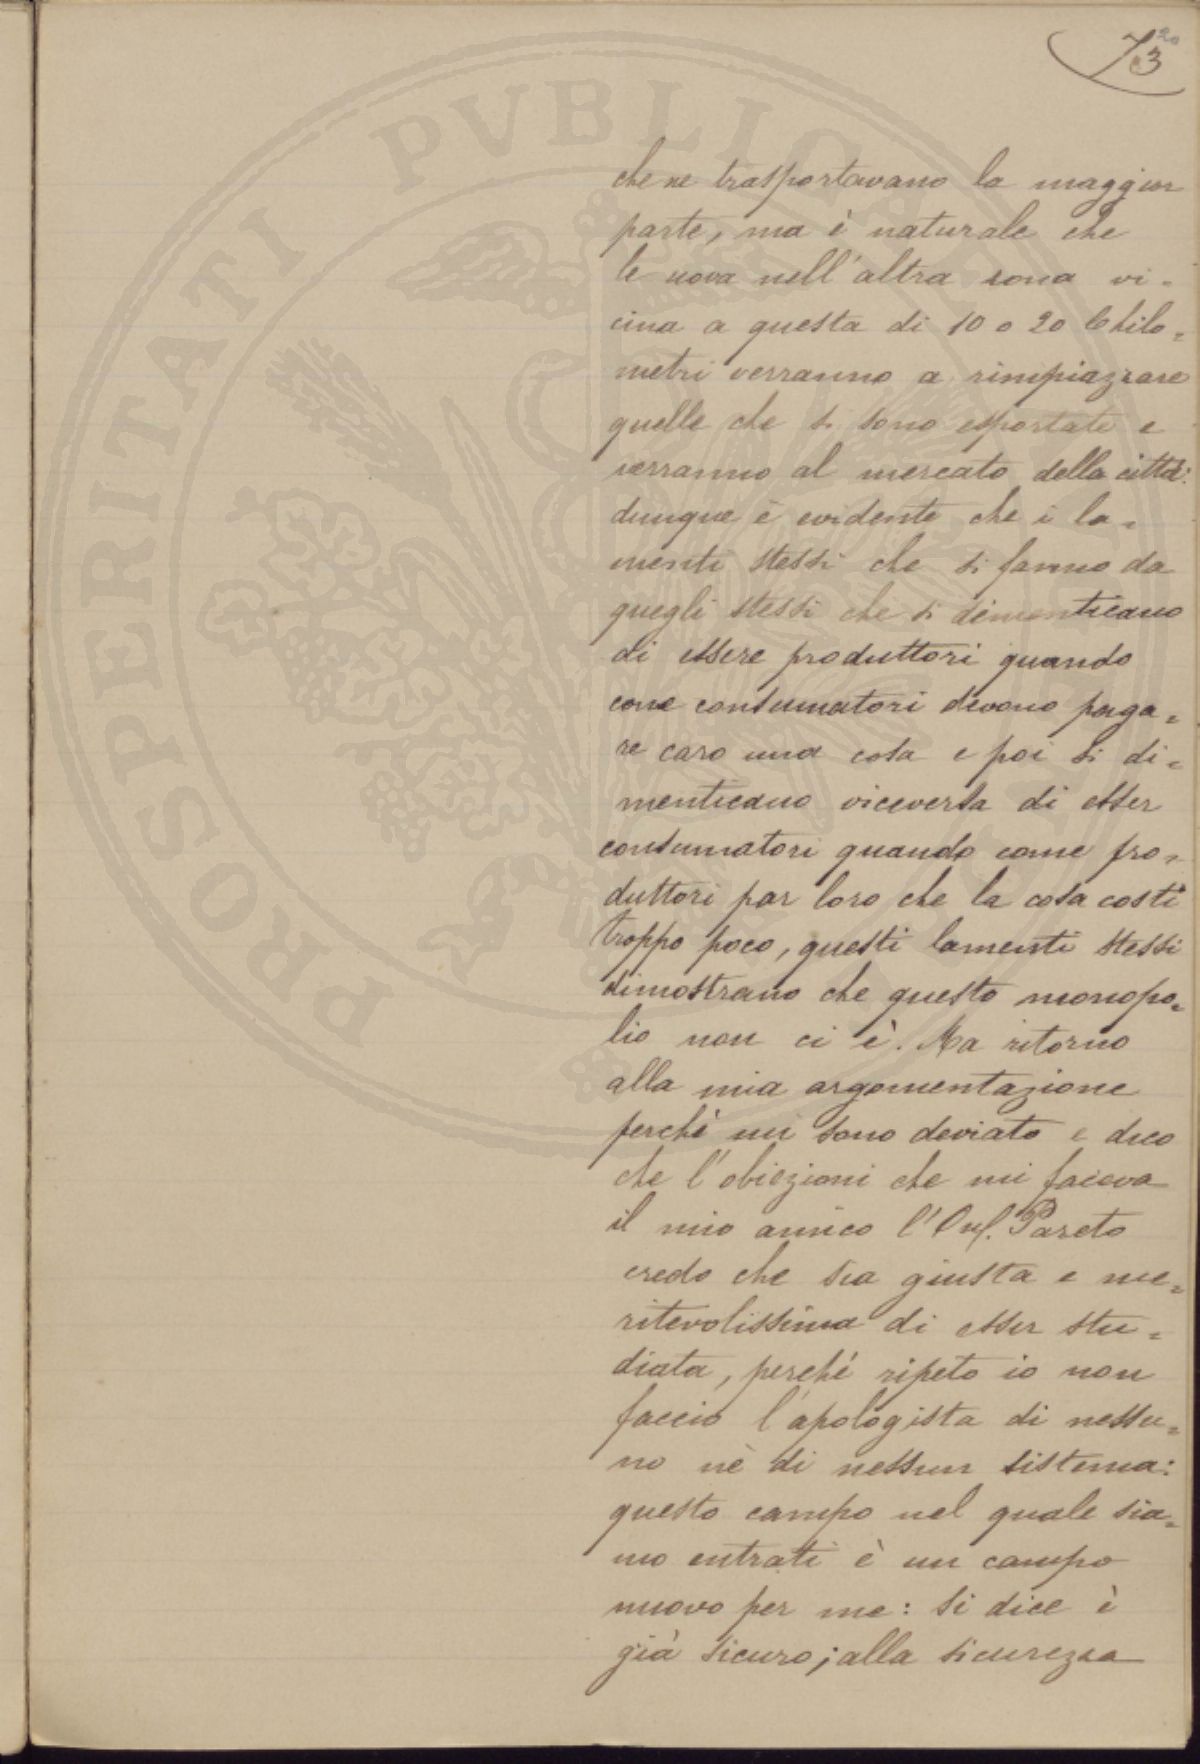 73
20
che ne trasportavano la maggior
parte, ma è naturale che
le uova nell'altra zona vi=
cina a questa di 10 o 20 Chilo=
metri verranno a rimpiazzare
quelle che si sono esportate e
verranno al mercato della città:
dunque è evidente che i la=
menti stessi che si fanno da
quegli stessi che si dimenticano
di essere produttori quando
come consumatori devono paga=
re caro una cosa e poi si di=
menticano viceversa di esser
consumatori quando come pro=
duttori par loro che la cosa costi
troppo poco, questi lamenti stessi
dimostrano che questo monopo=
lio non ci è. Ma ritorno
alla mia argomentazione
perchè mi sono deviato e dico
che l'obiezioni che mi faceva
il mio amico l'Onf. Pareto
credo che sia giusta e me=
ritevolissima di esser stu=
diata, perchè ripeto io non
faccio l'apologista di nessu=
no nè di nessun sistema:
questo campo nel quale sia=
mo entrati è un campo
nuovo per me: si dice è
già sicuro; alla sicurezza
PROSPERITATI PVBLICAE